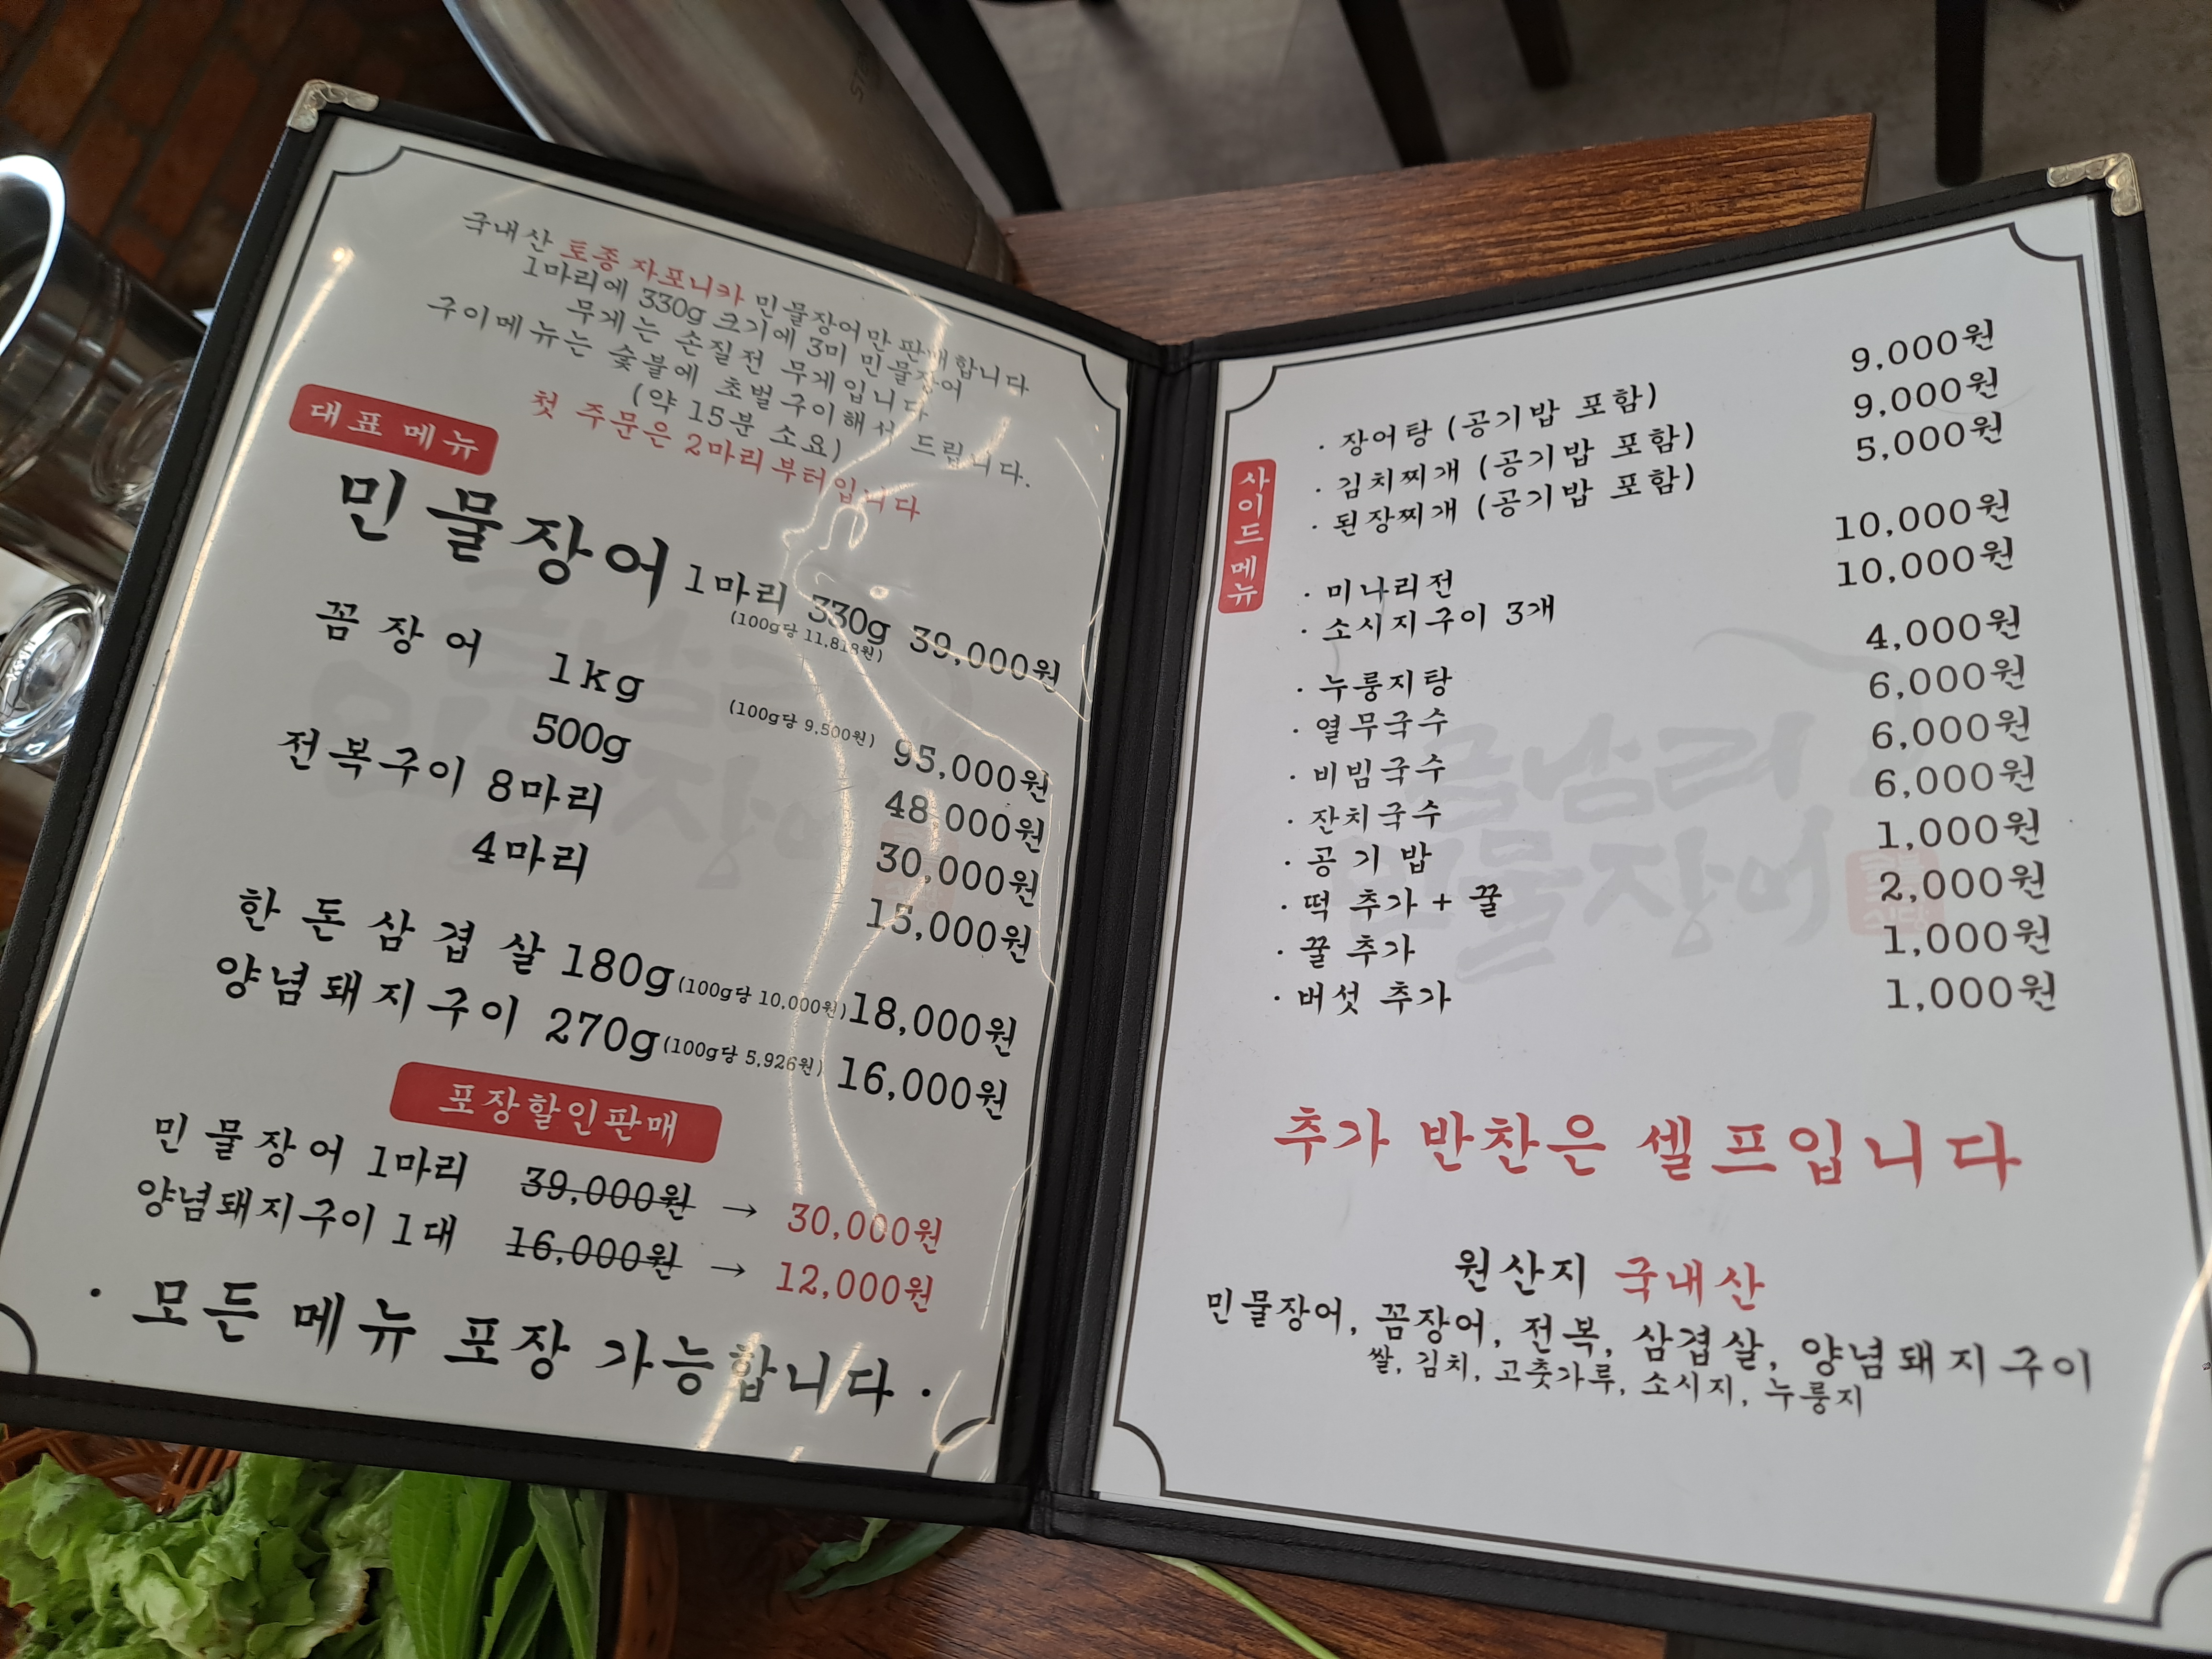 국내산 토종 자포니카 민물장어만 판매합니다
1마리에 330g 크기에 3미 민물장어
무게는 손질전 무게입니다
구이메뉴는 숯불에 초벌구이해서 드립니다.
(약 15분 소요)
첫 주문은 2마리부터입니다
대표 메뉴
민물장어 1마리 330g 39,000원
(100g당 11,818원)
꼼장어 1kg (100g당 9,500원) 95,000원
500g 48,000원
전복구이 8마리 30,000원
4마리 15,000원
한돈삼겹살 180g (100g당 10,000원) 18,000원
양념돼지구이 270g (100g당 5,926원) 16,000원
포장할인판매
민물장어 1마리 39,000원 → 30,000원
양념돼지구이 1대 16,000원 → 12,000원
· 모든 메뉴 포장 가능합니다 ·
사이드메뉴
· 장어탕 (공기밥 포함) 9,000원
· 김치찌개 (공기밥 포함) 9,000원
· 된장찌개 (공기밥 포함) 5,000원
· 미나리전 10,000원
· 소시지구이 3개 10,000원
· 누룽지탕 4,000원
· 열무국수 6,000원
· 비빔국수 6,000원
· 잔치국수 6,000원
· 공기밥 1,000원
· 떡 추가 + 꿀 2,000원
· 꿀 추가 1,000원
· 버섯 추가 1,000원
금남리
민물장어
추가 반찬은 셀프입니다
원산지 국내산
민물장어, 꼼장어, 전복, 삼겹살, 양념돼지구이
쌀, 김치, 고춧가루, 소시지, 누룽지